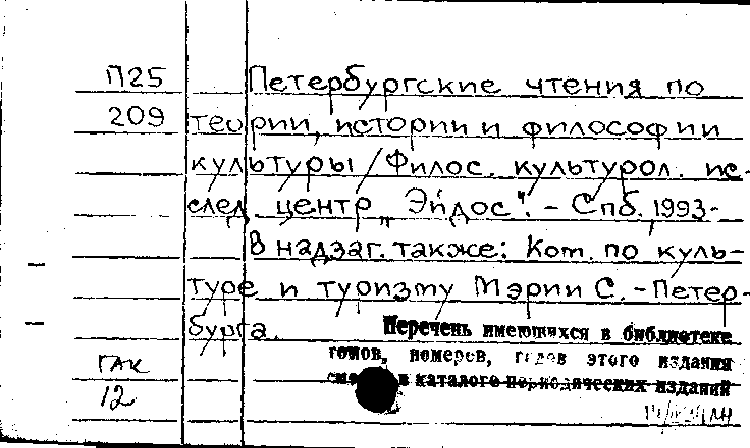 П25 Петербургские чтения по
209 теории, истории и философии
культуры / Филос. культурол. ис-
след. центр „Эйдос". - Спб. 1993-
В надзаг. также: Ком. по куль-
туре и туризму Мэрии С.-Петер-
бурга.
Перечень имеющихся в библиотеке
томов, номеров, годов этого издания
ГАК
в каталоге периодических изданий
12